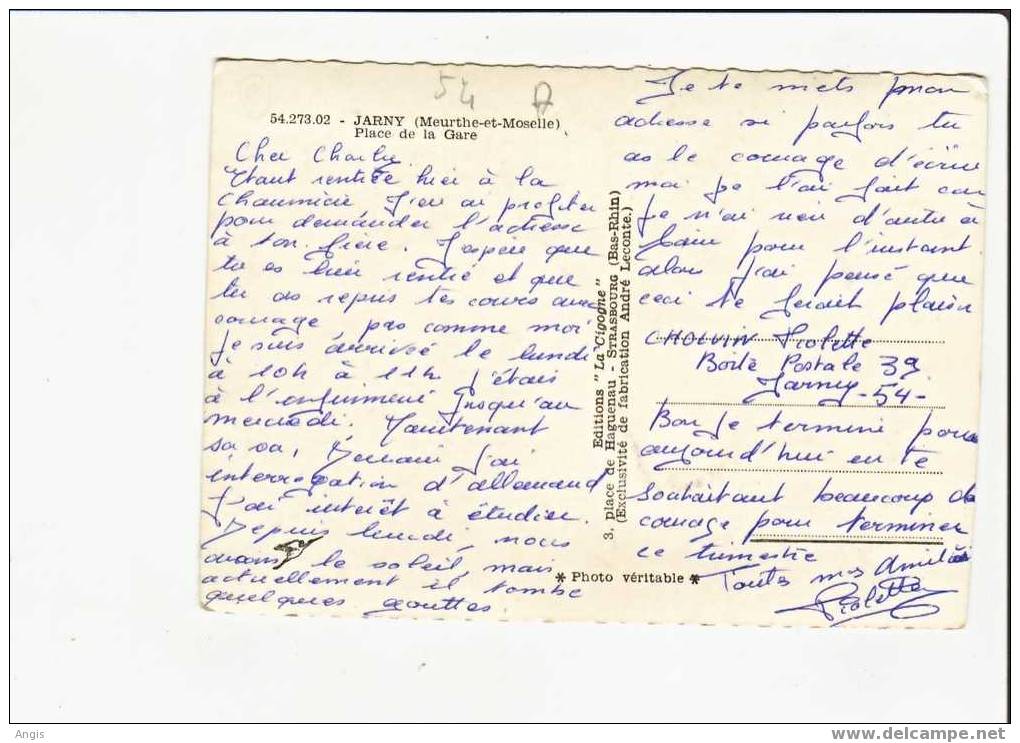 54 A
54.273.02 - JARNY (Meurthe-et-Moselle)
Place de la Gare
Cher Charly.
Etant rentrée hier à la
Chaumière j'en ai profiter
pour demander l'adresse
à ton frère. J'espère que
tu es bien rentré et que
tu as repris tes cours avec
courage, pas comme moi
je suis arrivée le lundi
à 10h à 11h j'étais
à l'infirmerie jusqu'au
mercredi. Maintenant
sa va, Demain j'ai
interrogation d'allemand
j'ai intérêt à étudier.
Depuis lundi, nous
avons le soleil, mais
actuellement il tombe
quelques gouttes
Editions "La Cigogne"
3, place de Haguenau - STRASBOURG (Bas-Rhin)
(Exclusivité de fabrication André Leconte.)
* Photo véritable *
Je te mets mon
adresse si parfois tu
as le courage d'écrire
moi je l'ai fait car
je n'ai rien d'autre à
faire pour l'instant
alors j'ai pensé que
ceci te ferait plaisir
CHOLVIN Violette
Boîte Postale 39
Jarny -54-
Bon je termine pour
aujourd'hui en te
souhaitant beaucoup de
courage pour terminer
ce trimestre
Toutes mes amitiés
Violette
Angis
www.delcampe.net